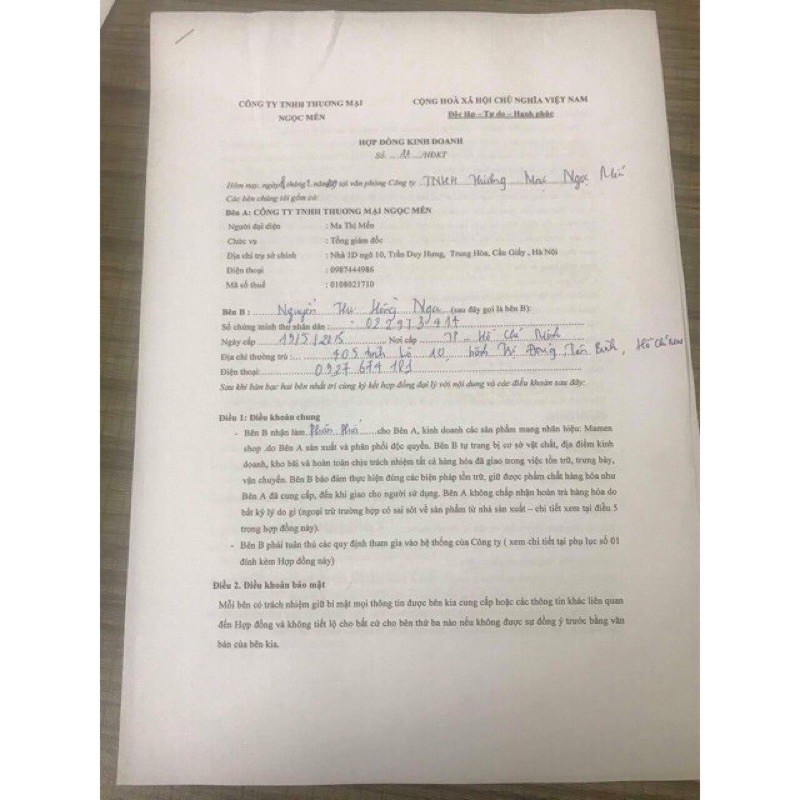 CÔNG TY TNHH THƯƠNG MẠI
NGỌC MẾN
CỘNG HOÀ XÃ HỘI CHỦ NGHĨA VIỆT NAM
Độc lập – Tự do – Hạnh phúc
HỢP ĐỒNG KINH DOANH
Số 11 /HĐKT
Hôm nay, ngày tháng năm tại văn phòng Công ty TNHH Thương Mại Ngọc Mến
Các bên chúng tôi gồm có:
Bên A: CÔNG TY TNHH THƯƠNG MẠI NGỌC MẾN
Người đại diện : Ma Thị Mến
Chức vụ : Tổng giám đốc
Địa chỉ trụ sở chính : Nhà 1D ngõ 10, Trần Duy Hưng, Trung Hòa, Cầu Giấy, Hà Nội
Điện thoại : 0987444986
Mã số thuế : 0108021710
Bên B : Nguyễn Thu Hồng Nga (sau đây gọi là bên B):
Số chứng minh thư nhân dân : 022973914
Ngày cấp 19/5/2015 Nơi cấp TP – Hồ Chí Minh
Địa chỉ thường trú : 405 tỉnh lộ 10, Tân Bình, Hồ Chí Minh
Điện thoại: 0927 674 181
Sau khi bàn bạc hai bên nhất trí cùng ký kết hợp đồng đại lý với nội dung và các điều khoản sau đây:
Điều 1: Điều khoản chung
- Bên B nhận làm Phân Phối cho Bên A, kinh doanh các sản phẩm mang nhãn hiệu: Mamen
shop .do Bên A sản xuất và phân phối độc quyền. Bên B tự trang bị cơ sở vật chất, địa điểm kinh
doanh, kho bãi và hoàn toàn chịu trách nhiệm tất cả hàng hóa đã giao trong việc tồn trữ, trưng bày,
vận chuyển. Bên B bảo đảm thực hiện đúng các biện pháp tồn trữ, giữ được phẩm chất hàng hóa như
Bên A đã cung cấp, đến khi giao cho người sử dụng. Bên A không chấp nhận hoàn trả hàng hóa do
bất kỳ lý do gì (ngoại trừ trường hợp có sai sót về sản phẩm từ nhà sản xuất – chi tiết xem tại điều 5
trong hợp đồng này).
- Bên B phải tuân thủ các quy định tham gia vào hệ thống của Công ty ( xem chi tiết tại phụ lục số 01
đính kèm Hợp đồng này)
Điều 2. Điều khoản bảo mật
Mỗi bên có trách nhiệm giữ bí mật mọi thông tin được bên kia cung cấp hoặc các thông tin khác liên quan
đến Hợp đồng và không tiết lộ cho bất cứ cho bên thứ ba nào nếu không được sự đồng ý trước bằng văn
bản của bên kia.